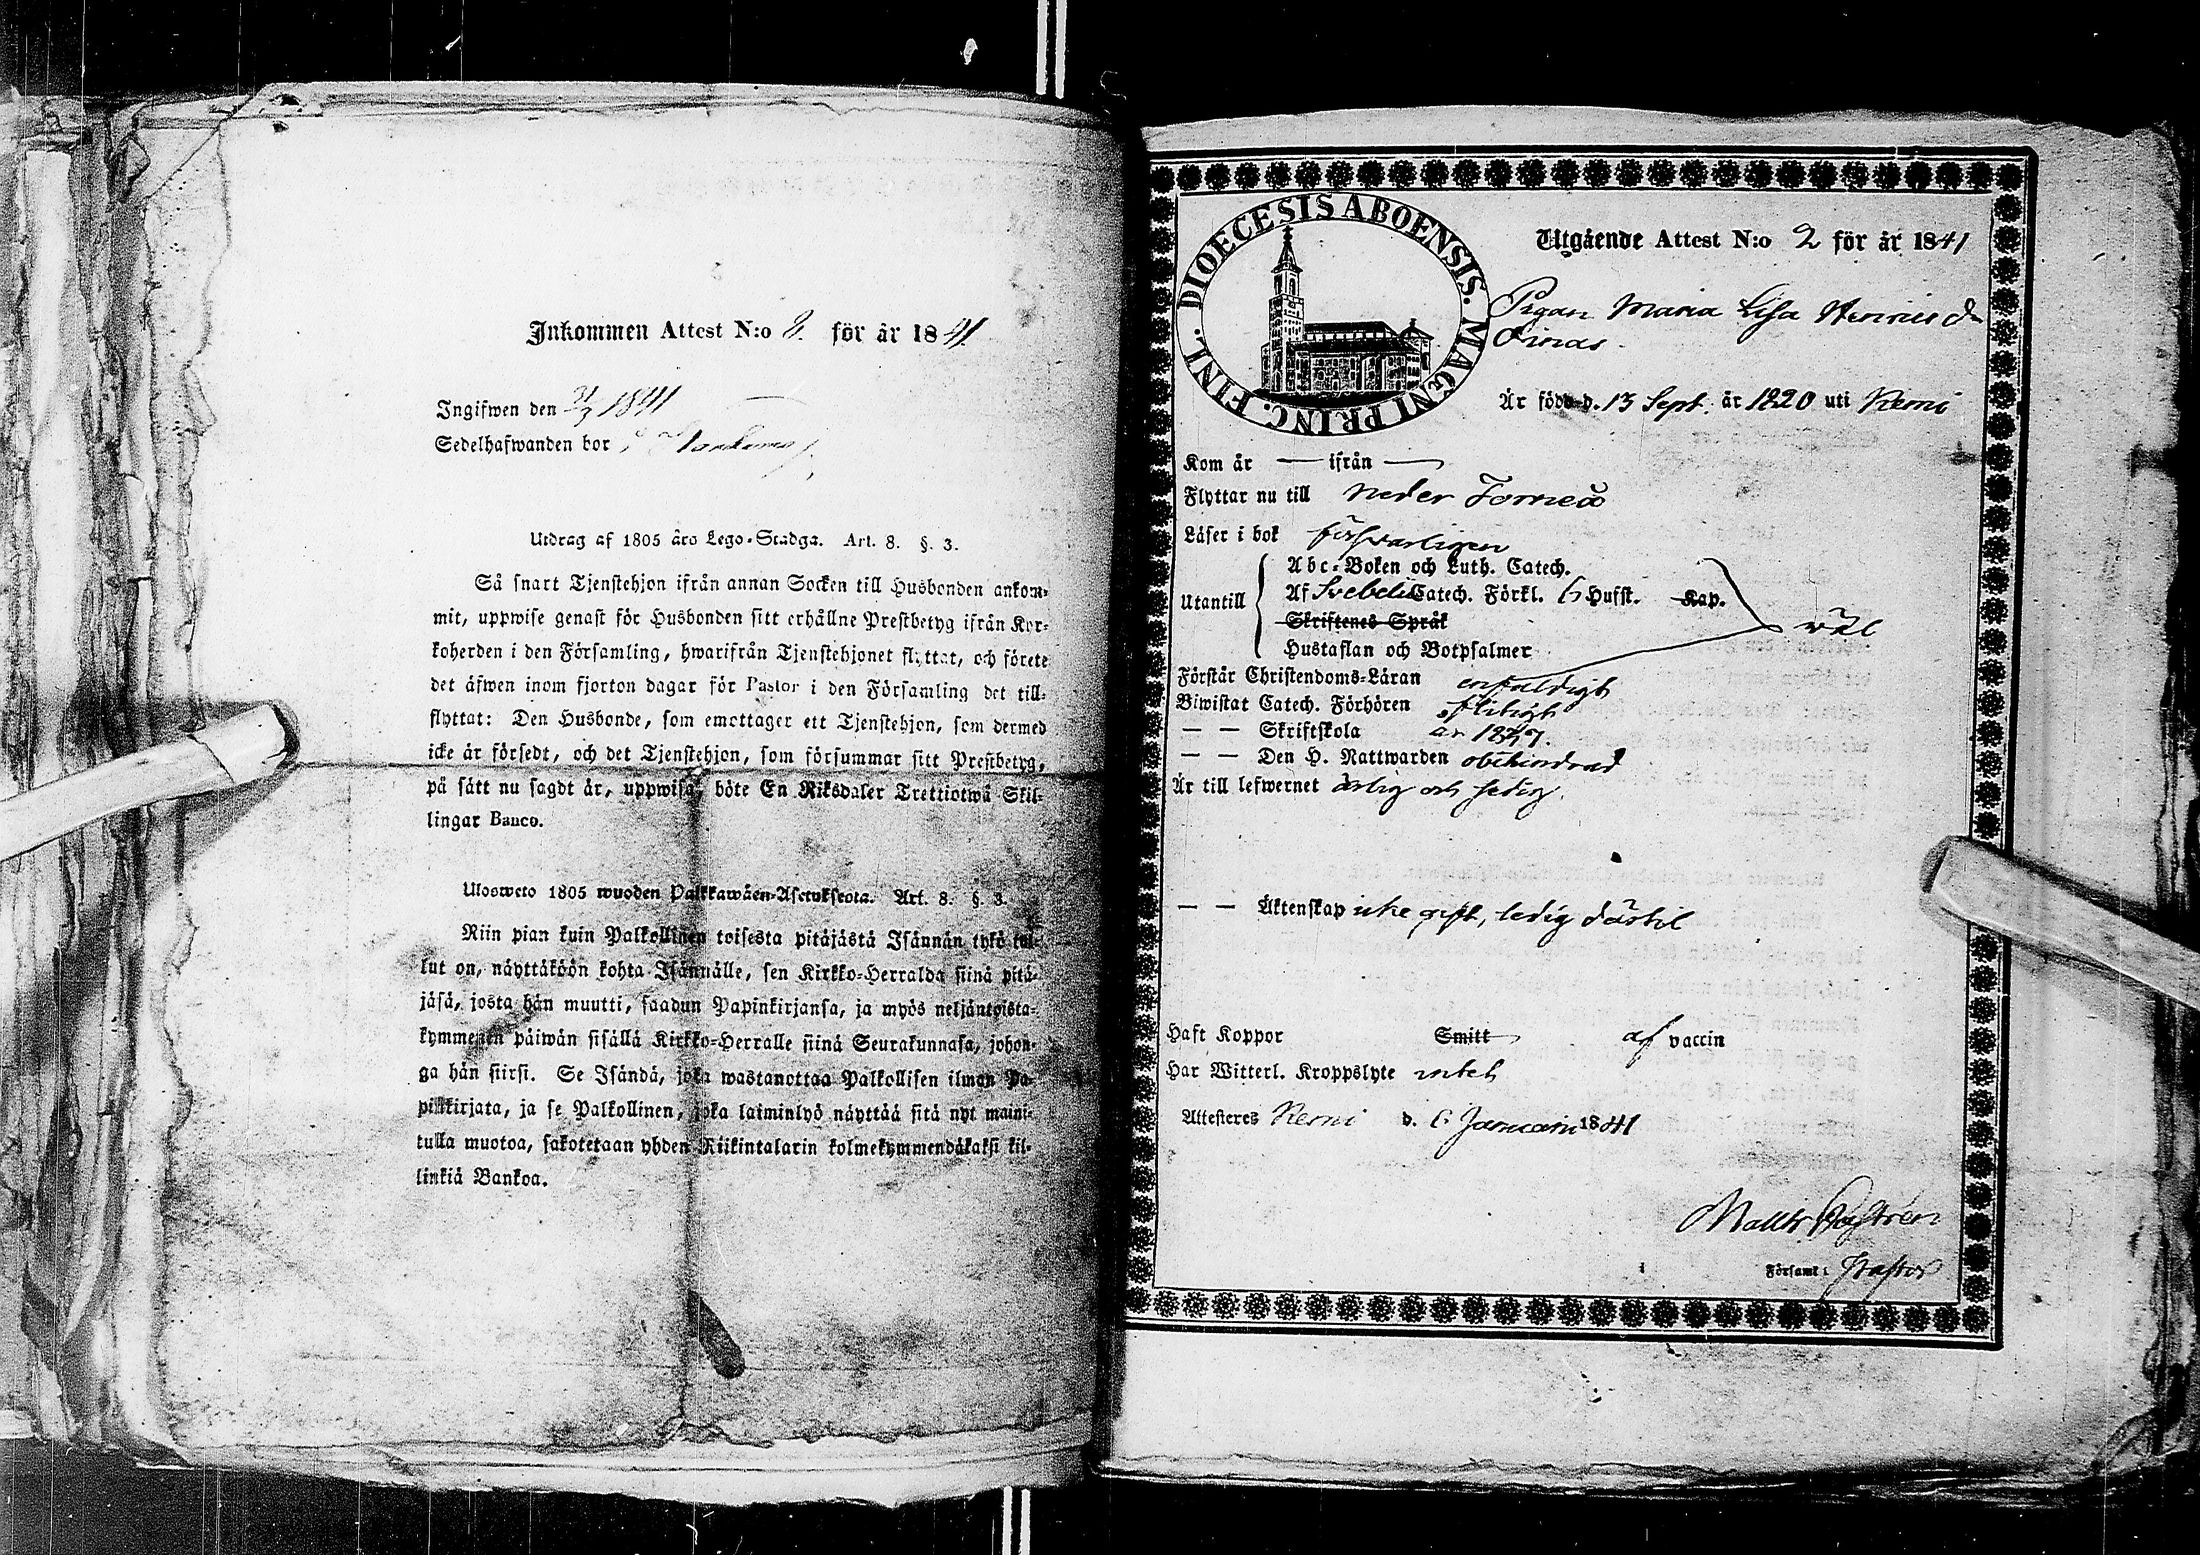 Inkommen Attest N:o 2. för år 1841.
Ingifwen den 1841
Sedelhafwanden bor i
Utdrag af 1805 års Lego-Stadga. Art. 8. §. 3.
Så snart Tjenstehjon ifrån annan Socken till Husbonden ankom-
mit, uppwise genast för Husbonden sitt erhållne Prestbetyg ifrån Kyr-
koherden i den Församling, hwarifrån Tjenstehjonet flyttat, och förete
det äfwen inom fjorton dagar för Pastor i den Församling det till-
flyttat: Den Husbonde, som emottager ett Tjenstehjon, som dermed
icke är försedt, och det Tjenstehjon, som försummar sitt Prestbetyg,
på sätt nu sagdt är, uppwisa, böte En Riksdaler Trettiotwå Skil-
lingar Banco.
Ulosweto 1805 wuoden Palkkawäen-Asetuksesta. Art. 8. §. 3.
Niin pian kuin Palkollinen toisesta pitäjästä Isännän tykö tul-
lut on, näyttäköön kohta Isännälle, sen Kirkko-Herralda siinä pitä-
jäsä, josta hän muutti, saadun Papinkirjansa, ja myös neljäntoista-
kymmenen päiwän sisällä Kirkko-Herralle siinä Seurakunnasa, johon-
ga hän siirsi. Se Isändä, joka wastanottaa Palkollisen ilman Pa-
pinkirjata, ja se Palkollinen, joka laiminlyö näyttää sitä nyt maini-
tulla muotoa, sakotetaan yhden Riikintalarin kolmekymmendäkaksi kil-
linkiä Bankoa.
DIOECESIS ABOENSIS. MAGNI PRINC. FINL.
Utgående Attest N:o 2 för år 1841
Pigan Maria Lisa Henrics dr
Pinas.
Är född d. 13 Sept. år 1820 uti Kemi
Kom år — ifrån —
Flyttar nu till Neder Torneå
Läser i bok försvarligen
Abc-Boken och Luth. Catech.
Utantill Af Svebelii Catech. Förkl. 6 Hufst. Kap.
Skriftenes Språk wäl
Hustaflan och Botpsalmer
Förstår Christendoms-Läran enfaldigt
Biwistat Catech. Förhören flitigt
— — Skriftskola år 1837.
— — Den H. Nattwarden obehindrad
Är till lefwernet ärlig och sedig.
— — Äktenskap icke gift, ledig därtil
Haft Koppor Smitt af vaccin
Har Witterl. Kroppslyte intet
Attesteres Kemi d. 6 Januari 1841
Matth. Castrén
Församl: Pastor